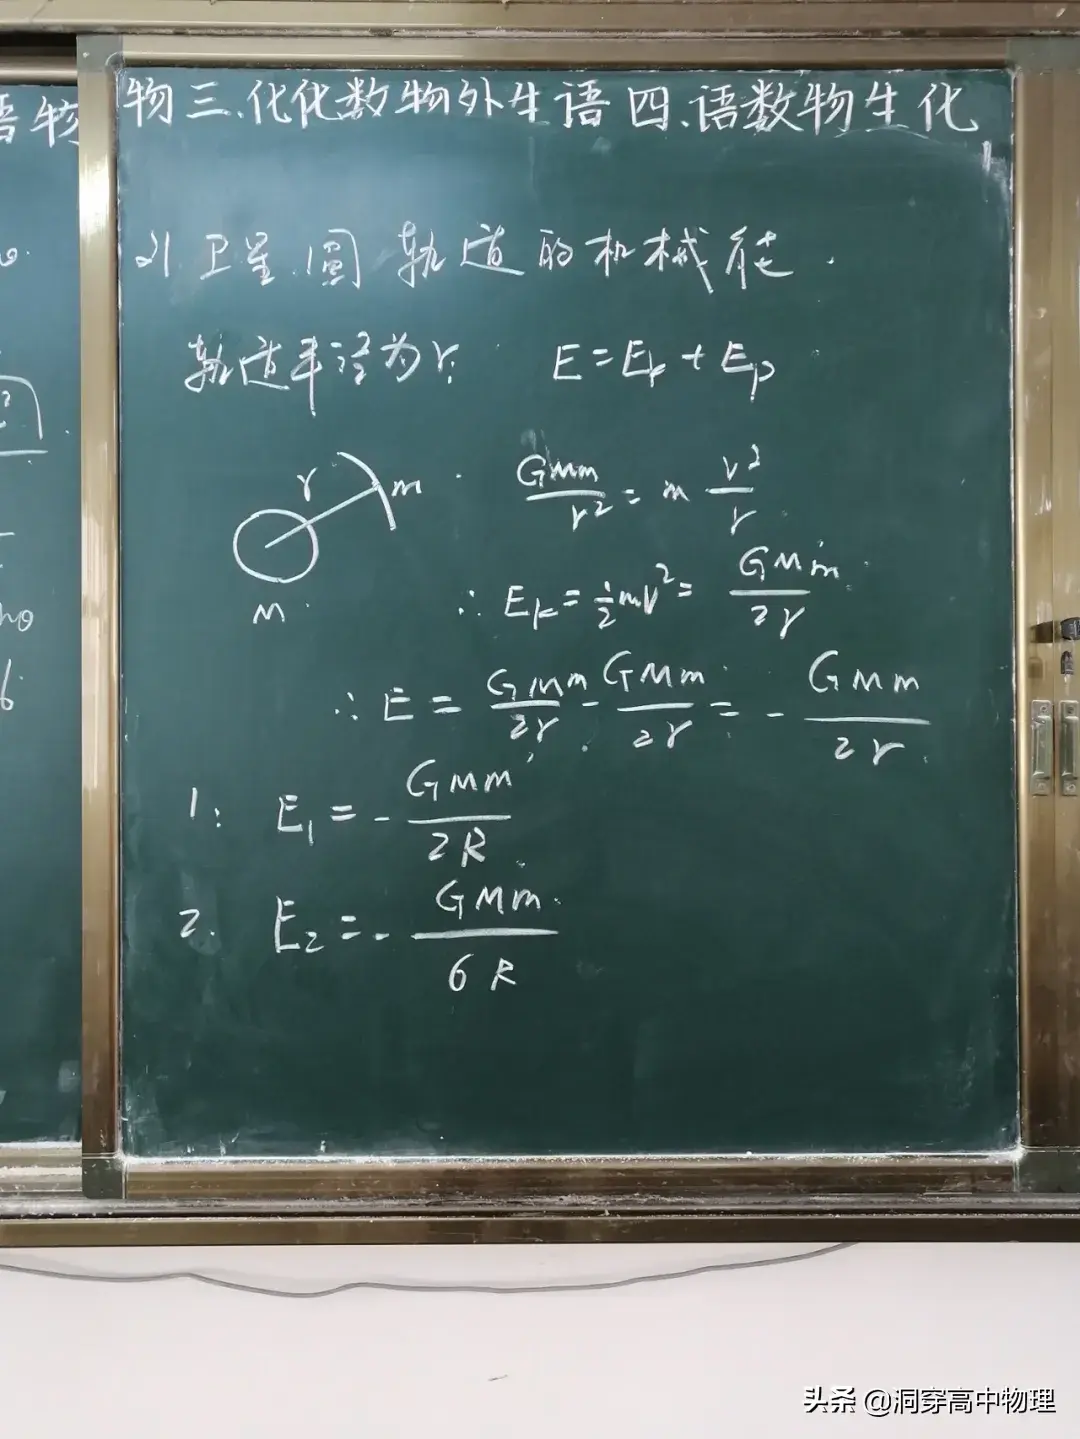 物三.化化数物外生语四.语数物生化
语物
2) 卫星圆轨道的机械能.
轨道半径为r: E=Ek+Ep
r m
M
GMm/r²=m v²/r
∴ Ek=½mv²=GMm/2r
∴ E=GMm/2r-GMm/2r=-GMm/2r
1: E₁=-GMm/2R
2. E₂=-GMm/6R
头条 @洞穿高中物理